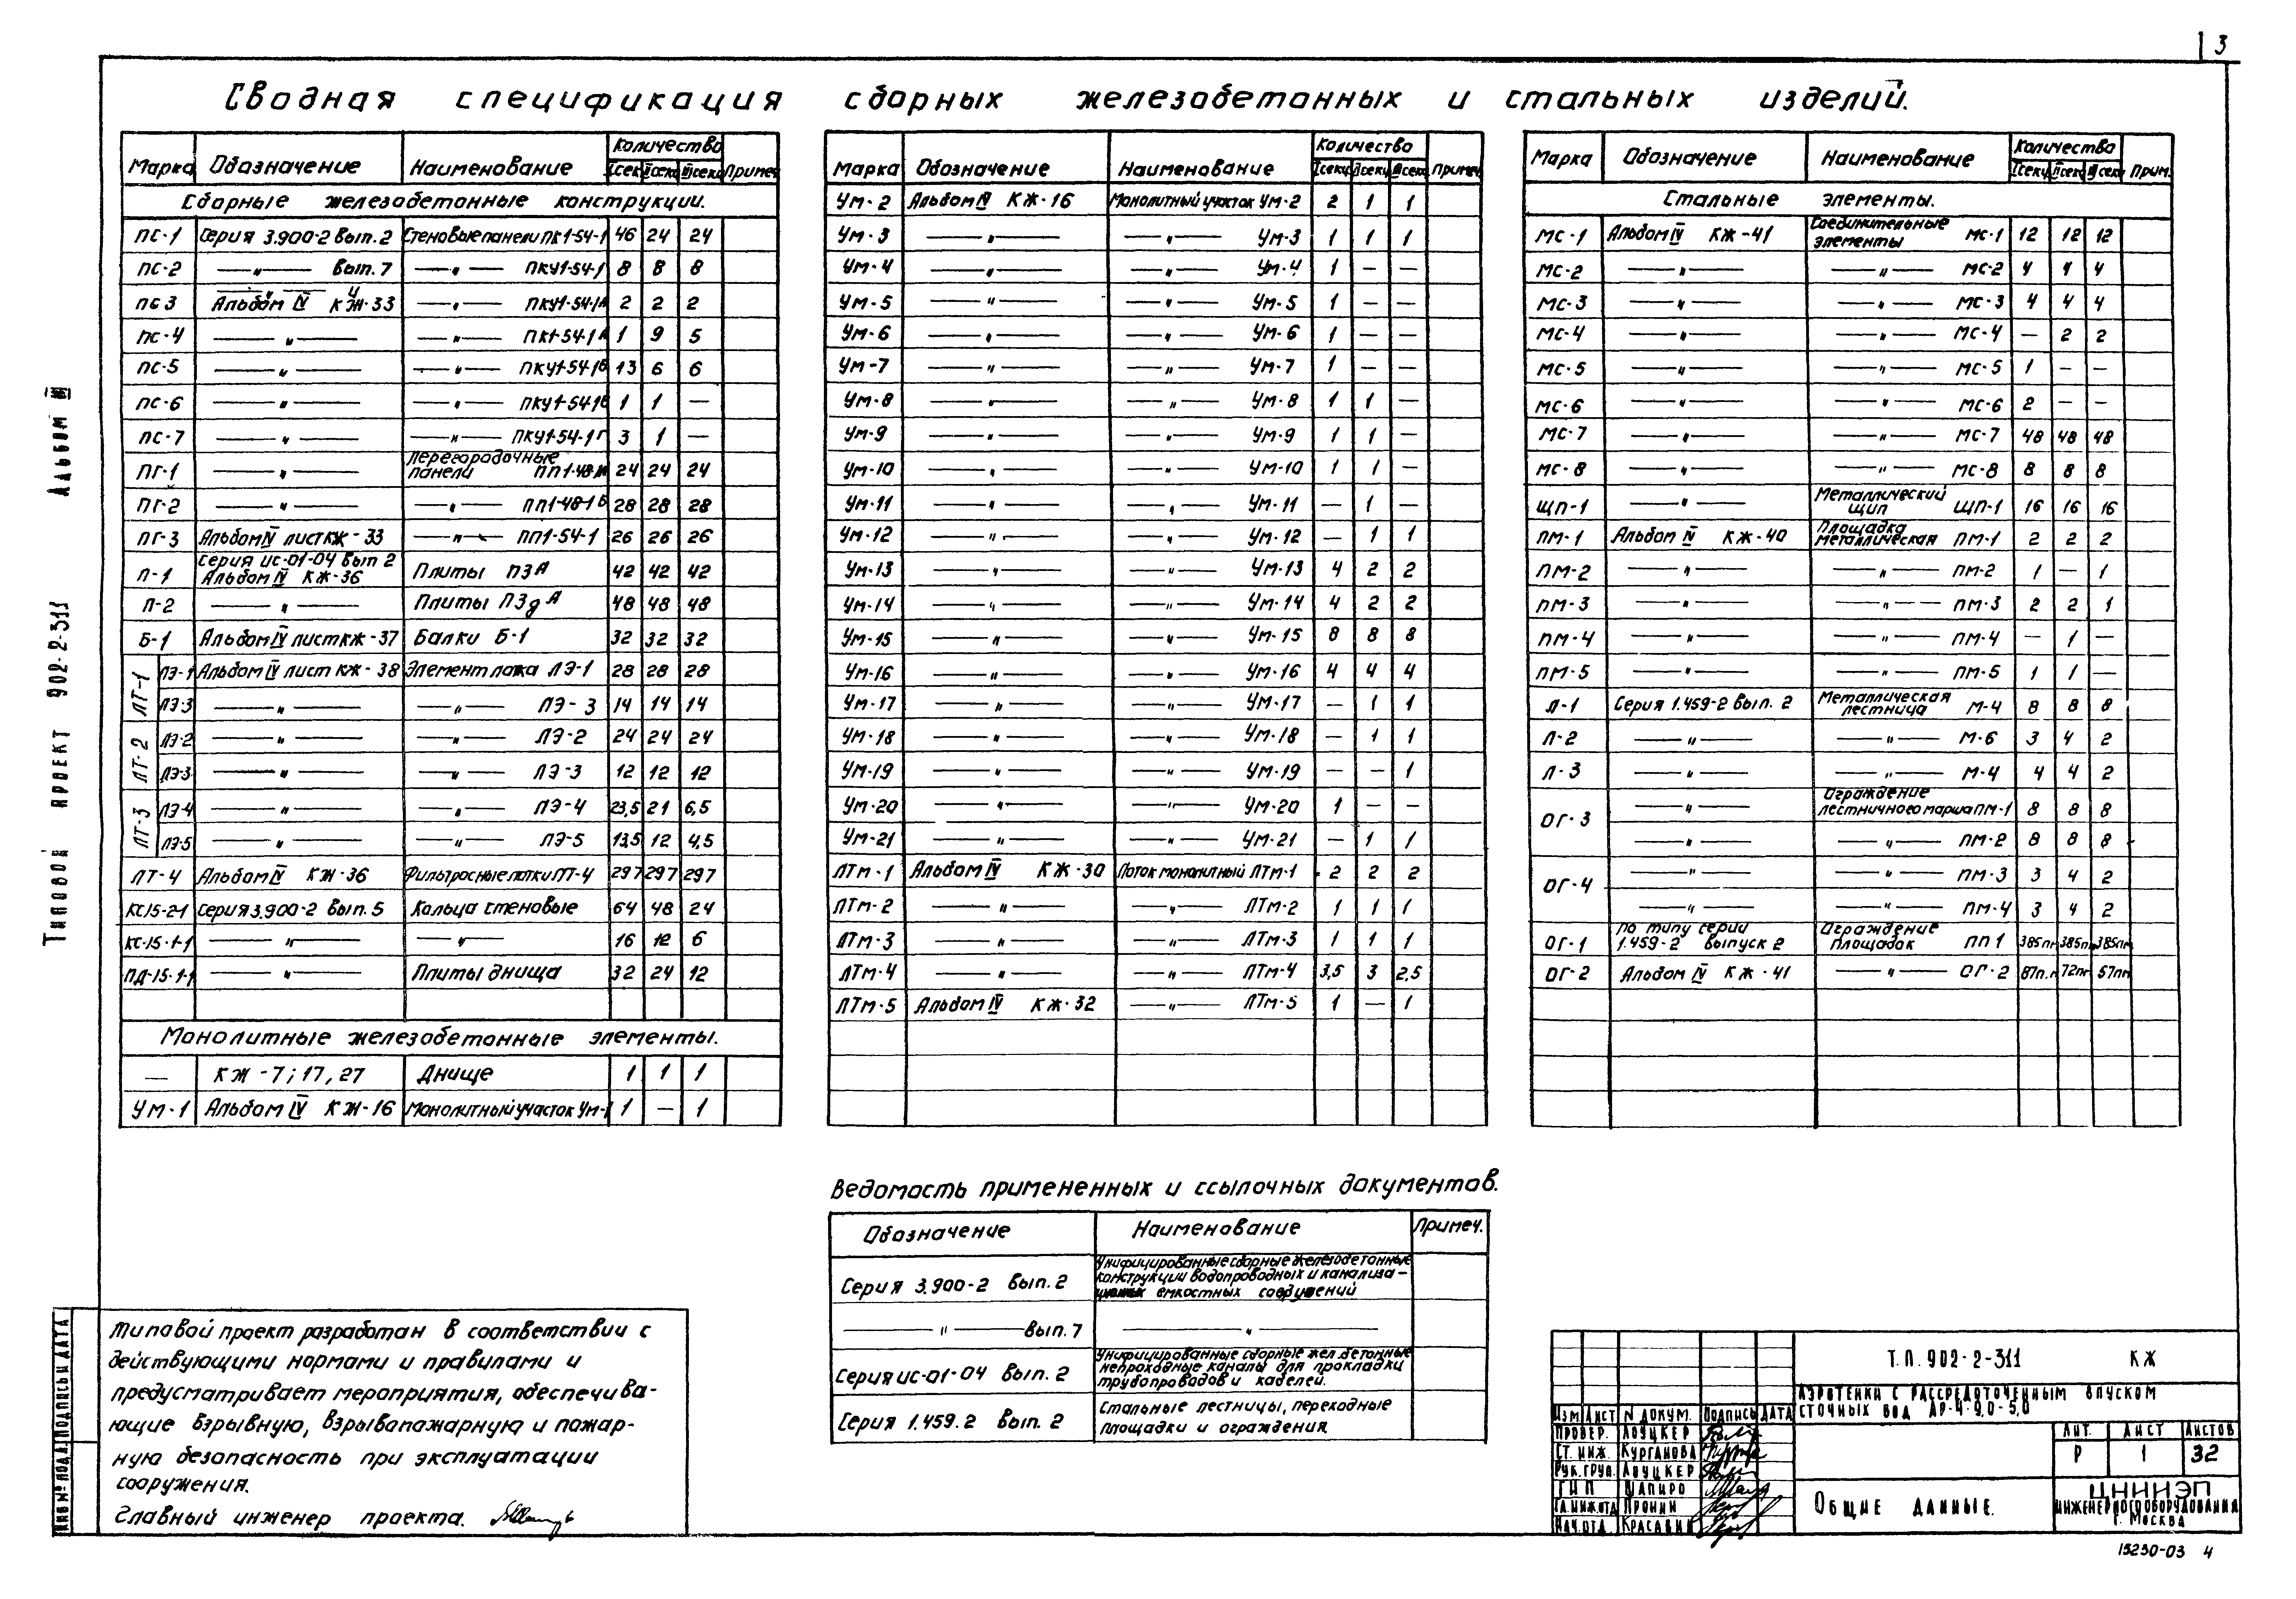 3
Сводная спецификация сборных железобетонных и стальных изделий.
Марка Обозначение Наименование Количество Iсекц IIсекц IIIсекц Примеч.
Сборные железобетонные конструкции.
ПС-1 Серия 3.900-2 Вып. 2 Стеновые панели ПК1-54-1 46 24 24
ПС-2 —〃— Вып. 7 —〃— ПКУ1-54-1 8 8 8
ПС 3 Альбом IV КЖ-33 —〃— ПКУ1-54-1А 2 2 2
ПС-4 —〃— —〃— ПК1-54-1А 1 9 5
ПС-5 —〃— —〃— ПКУ1-54-1Б 13 6 6
ПС-6 —〃— —〃— ПКУ1-54-1В 1 1 —
ПС-7 —〃— —〃— ПКУ1-54-1Г 3 1 —
ПГ-1 —〃— Перегородочные панели ПП1-48-1А 24 24 24
ПГ-2 —〃— —〃— ПП1-48-1Б 28 28 28
ПГ-3 Альбом IV лист КЖ-33 —〃— ПП1-54-1 26 26 26
П-1 Серия ИС-01-04 Вып 2 Альбом IV КЖ-36 Плиты П3А 42 42 42
П-2 —〃— Плиты П3дА 48 48 48
Б-1 Альбом IV лист КЖ-37 Балки Б-1 32 32 32
ЛТ-1 ЛЭ-1 Альбом IV лист КЖ-38 Элемент лотка ЛЭ-1 28 28 28
ЛЭ-3 —〃— —〃— ЛЭ-3 14 14 14
ЛТ-2 ЛЭ-2 —〃— —〃— ЛЭ-2 24 24 24
ЛЭ-3 —〃— —〃— ЛЭ-3 12 12 12
ЛТ-3 ЛЭ-4 —〃— —〃— ЛЭ-4 23,5 21 6,5
ЛЭ-5 —〃— —〃— ЛЭ-5 13,5 12 4,5
ЛТ-4 Альбом IV КЖ-36 Фильтросные лотки ЛТ-4 297 297 297
КС15-2-1 Серия 3.900-2 Вып. 5 Кольца стеновые 64 48 24
КС-15-1-1 —〃— —〃— 16 12 6
ПД-15-1-1 —〃— Плиты днища 32 24 12
Монолитные железобетонные элементы.
— КЖ-7; 17, 27 Днище 1 1 1
Ум-1 Альбом IV КЖ-16 Монолитный участок Ум-1 1 — 1
Марка Обозначение Наименование Количество Iсекц IIсекц IIIсекц Примеч
Ум-2 Альбом IV КЖ-16 Монолитный участок Ум-2 2 1 1
Ум-3 —〃— —〃— Ум-3 1 1 1
Ум-4 —〃— —〃— Ум-4 1 — —
Ум-5 —〃— —〃— Ум-5 1 — —
Ум-6 —〃— —〃— Ум-6 1 — —
Ум-7 —〃— —〃— Ум-7 1 — —
Ум-8 —〃— —〃— Ум-8 1 1 —
Ум-9 —〃— —〃— Ум-9 1 1 —
Ум-10 —〃— —〃— Ум-10 1 1 —
Ум-11 —〃— —〃— Ум-11 — 1 —
Ум-12 —〃— —〃— Ум-12 — 1 1
Ум-13 —〃— —〃— Ум-13 4 2 2
Ум-14 —〃— —〃— Ум-14 4 2 2
Ум-15 —〃— —〃— Ум-15 8 8 8
Ум-16 —〃— —〃— Ум-16 4 4 4
Ум-17 —〃— —〃— Ум-17 — 1 1
Ум-18 —〃— —〃— Ум-18 — 1 1
Ум-19 —〃— —〃— Ум-19 — — 1
Ум-20 —〃— —〃— Ум-20 1 — —
Ум-21 —〃— —〃— Ум-21 — 1 1
ЛТм-1 Альбом IV КЖ-30 Лоток монолитный ЛТм-1 2 2 2
ЛТм-2 —〃— —〃— ЛТм-2 1 1 1
ЛТм-3 —〃— —〃— ЛТм-3 1 1 1
ЛТм-4 —〃— —〃— ЛТм-4 3,5 3 2,5
ЛТм-5 Альбом IV КЖ-32 —〃— ЛТм-5 1 — 1
Марка Обозначение Наименование Количество Iсекц IIсекц IIIсекц Прим.
Стальные элементы.
МС-1 Альбом IV КЖ-41 Соединительные элементы МС-1 12 12 12
МС-2 —〃— —〃— МС-2 4 4 4
МС-3 —〃— —〃— МС-3 4 4 4
МС-4 —〃— —〃— МС-4 — 2 2
МС-5 —〃— —〃— МС-5 1 — —
МС-6 —〃— —〃— МС-6 2 — —
МС-7 —〃— —〃— МС-7 48 48 48
МС-8 —〃— —〃— МС-8 8 8 8
ЩП-1 —〃— Металлический щип ЩП-1 16 16 16
ПМ-1 Альбом IV КЖ-40 Площадка металлическая ПМ-1 2 2 2
ПМ-2 —〃— —〃— ПМ-2 1 — 1
ПМ-3 —〃— —〃— ПМ-3 2 2 1
ПМ-4 —〃— —〃— ПМ-4 — 1 —
ПМ-5 —〃— —〃— ПМ-5 1 1 —
Л-1 Серия 1.459-2 Вып. 2 Металлическая лестница М-4 8 8 8
Л-2 —〃— —〃— М-6 3 4 2
Л-3 —〃— —〃— М-4 4 4 2
ОГ-3 —〃— Ограждение лестничного марша ПМ-1 8 8 8
—〃— —〃— ПМ-2 8 8 8
ОГ-4 —〃— —〃— ПМ-3 3 4 2
—〃— —〃— ПМ-4 3 4 2
ОГ-1 По типу серии 1.459-2 выпуск 2 Ограждение площадок ПП1 385пм 385пм 385пм
ОГ-2 Альбом IV КЖ-41 —〃— ОГ-2 87п.м 72пм 57пм
Ведомость примененных и ссылочных документов.
Обозначение Наименование Примеч.
Серия 3.900-2 Вып. 2 Унифицированные сборные железобетонные
конструкции водопроводных и канализа-
ционных емкостных сооружений
—〃— Вып. 7 —〃—
Серия ИС-01-04 Вып. 2 Унифицированные сборные жел.бетонные
непроходные каналы для прокладки
трубопроводов и кабелей.
Серия 1.459.2 Вып. 2 Стальные лестницы, переходные
площадки и ограждения
Типовой проект разработан в соответствии с
действующими нормами и правилами и
предусматривает мероприятия, обеспечива-
ющие взрывную, взрывопожарную и пожар-
ную безопасность при эксплуатации
сооружения.
Главный инженер проекта.
Типовой проект 902-2-311 Альбом III
ИНВ № ПОДЛ. ПОДПИСЬ И ДАТА
Т.П. 902-2-311 КЖ
АЭРОТЕНКИ С РАССРЕДОТОЧЕННЫМ ВПУСКОМ
СТОЧНЫХ ВОД АР-4-9,0-5,0
ИЗМ ЛИСТ N ДОКУМ. ПОДПИСЬ ДАТА
ПРОВЕР. ЛОУЦКЕР
СТ. ИНЖ. КУРГАНОВА
РУК. ГРУП. ЛОУЦКЕР
ГИП ШАПИРО
ГЛ.ИНЖ.ОТД ПРОНИН
НАЧ.ОТД. КРАСАВИН
ЛИТ. ЛИСТ ЛИСТОВ
Р 1 32
ОБЩИЕ ДАННЫЕ.
ЦНИИЭП
ИНЖЕНЕРНОГО ОБОРУДОВАНИЯ
Г. МОСКВА
15230-03 4